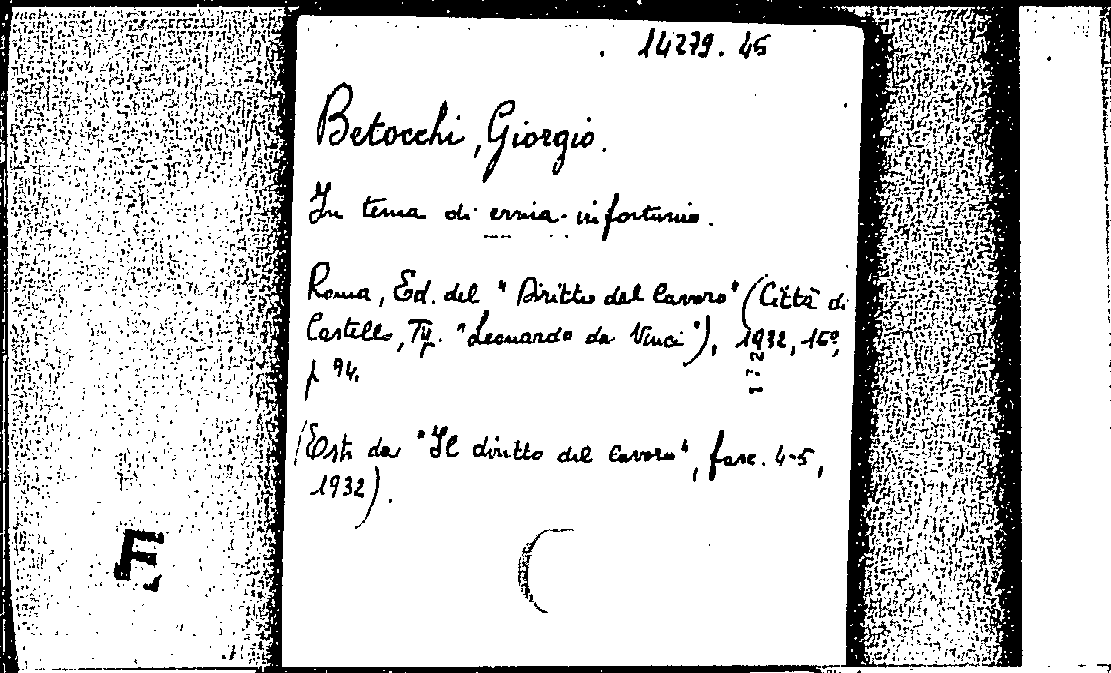 14279.45
Betocchi, Giorgio.
In tema di ernia-infortunio.
Roma, Ed. del "Diritto del lavoro" (Città di
Castello, Tip. "Leonardo da Vinci"), 1932, 16º,
p 94.
172
(Estr. da "Il diritto del lavoro", fasc. 4-5,
1932).
E